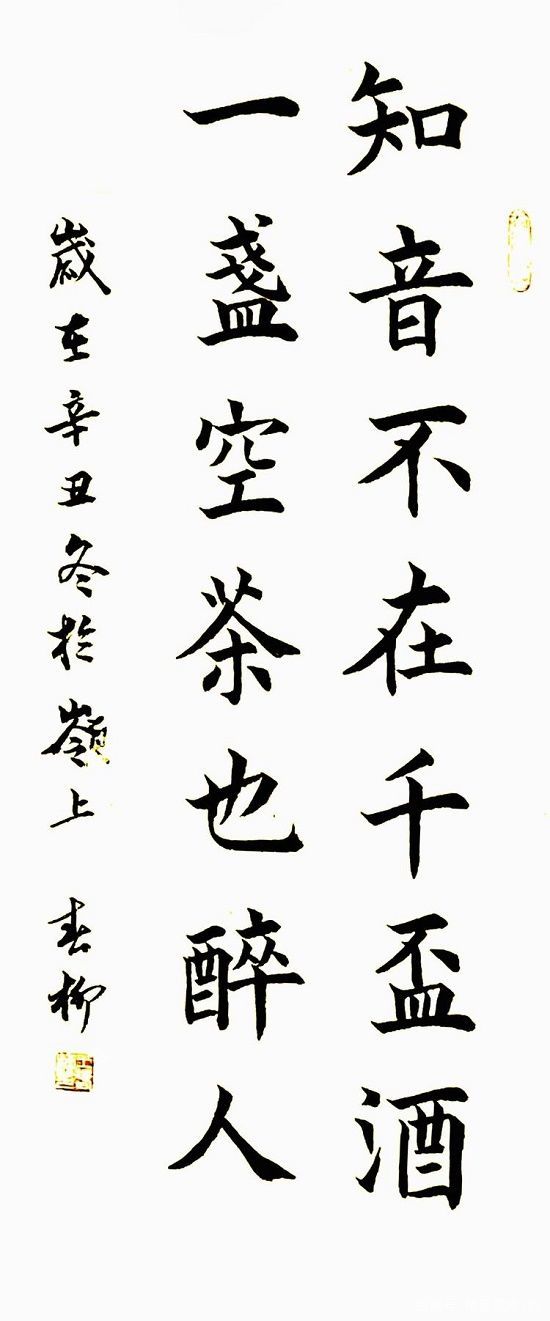 知音不在千盃酒
一盞空茶也醉人
歲在辛丑冬於嶺上 春柳